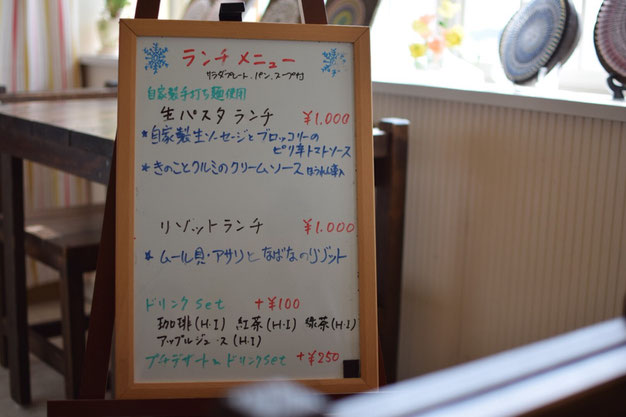 ランチメニュー
サラダプレート、パン、スープ付
自家製手打ち麺使用
生パスタランチ ¥1.000
*自家製生ソーセージとブロッコリーの
ピリ辛トマトソース
*きのことクルミのクリームソース ほうれん草入
リゾットランチ ¥1.000
*ムール貝・アサリとなばなのリゾット
ドリンクset +¥100
珈琲(H・I) 紅茶(H・I) 緑茶(H・I)
アップルジュース(H・I)
プチデザート&ドリンクset +¥250